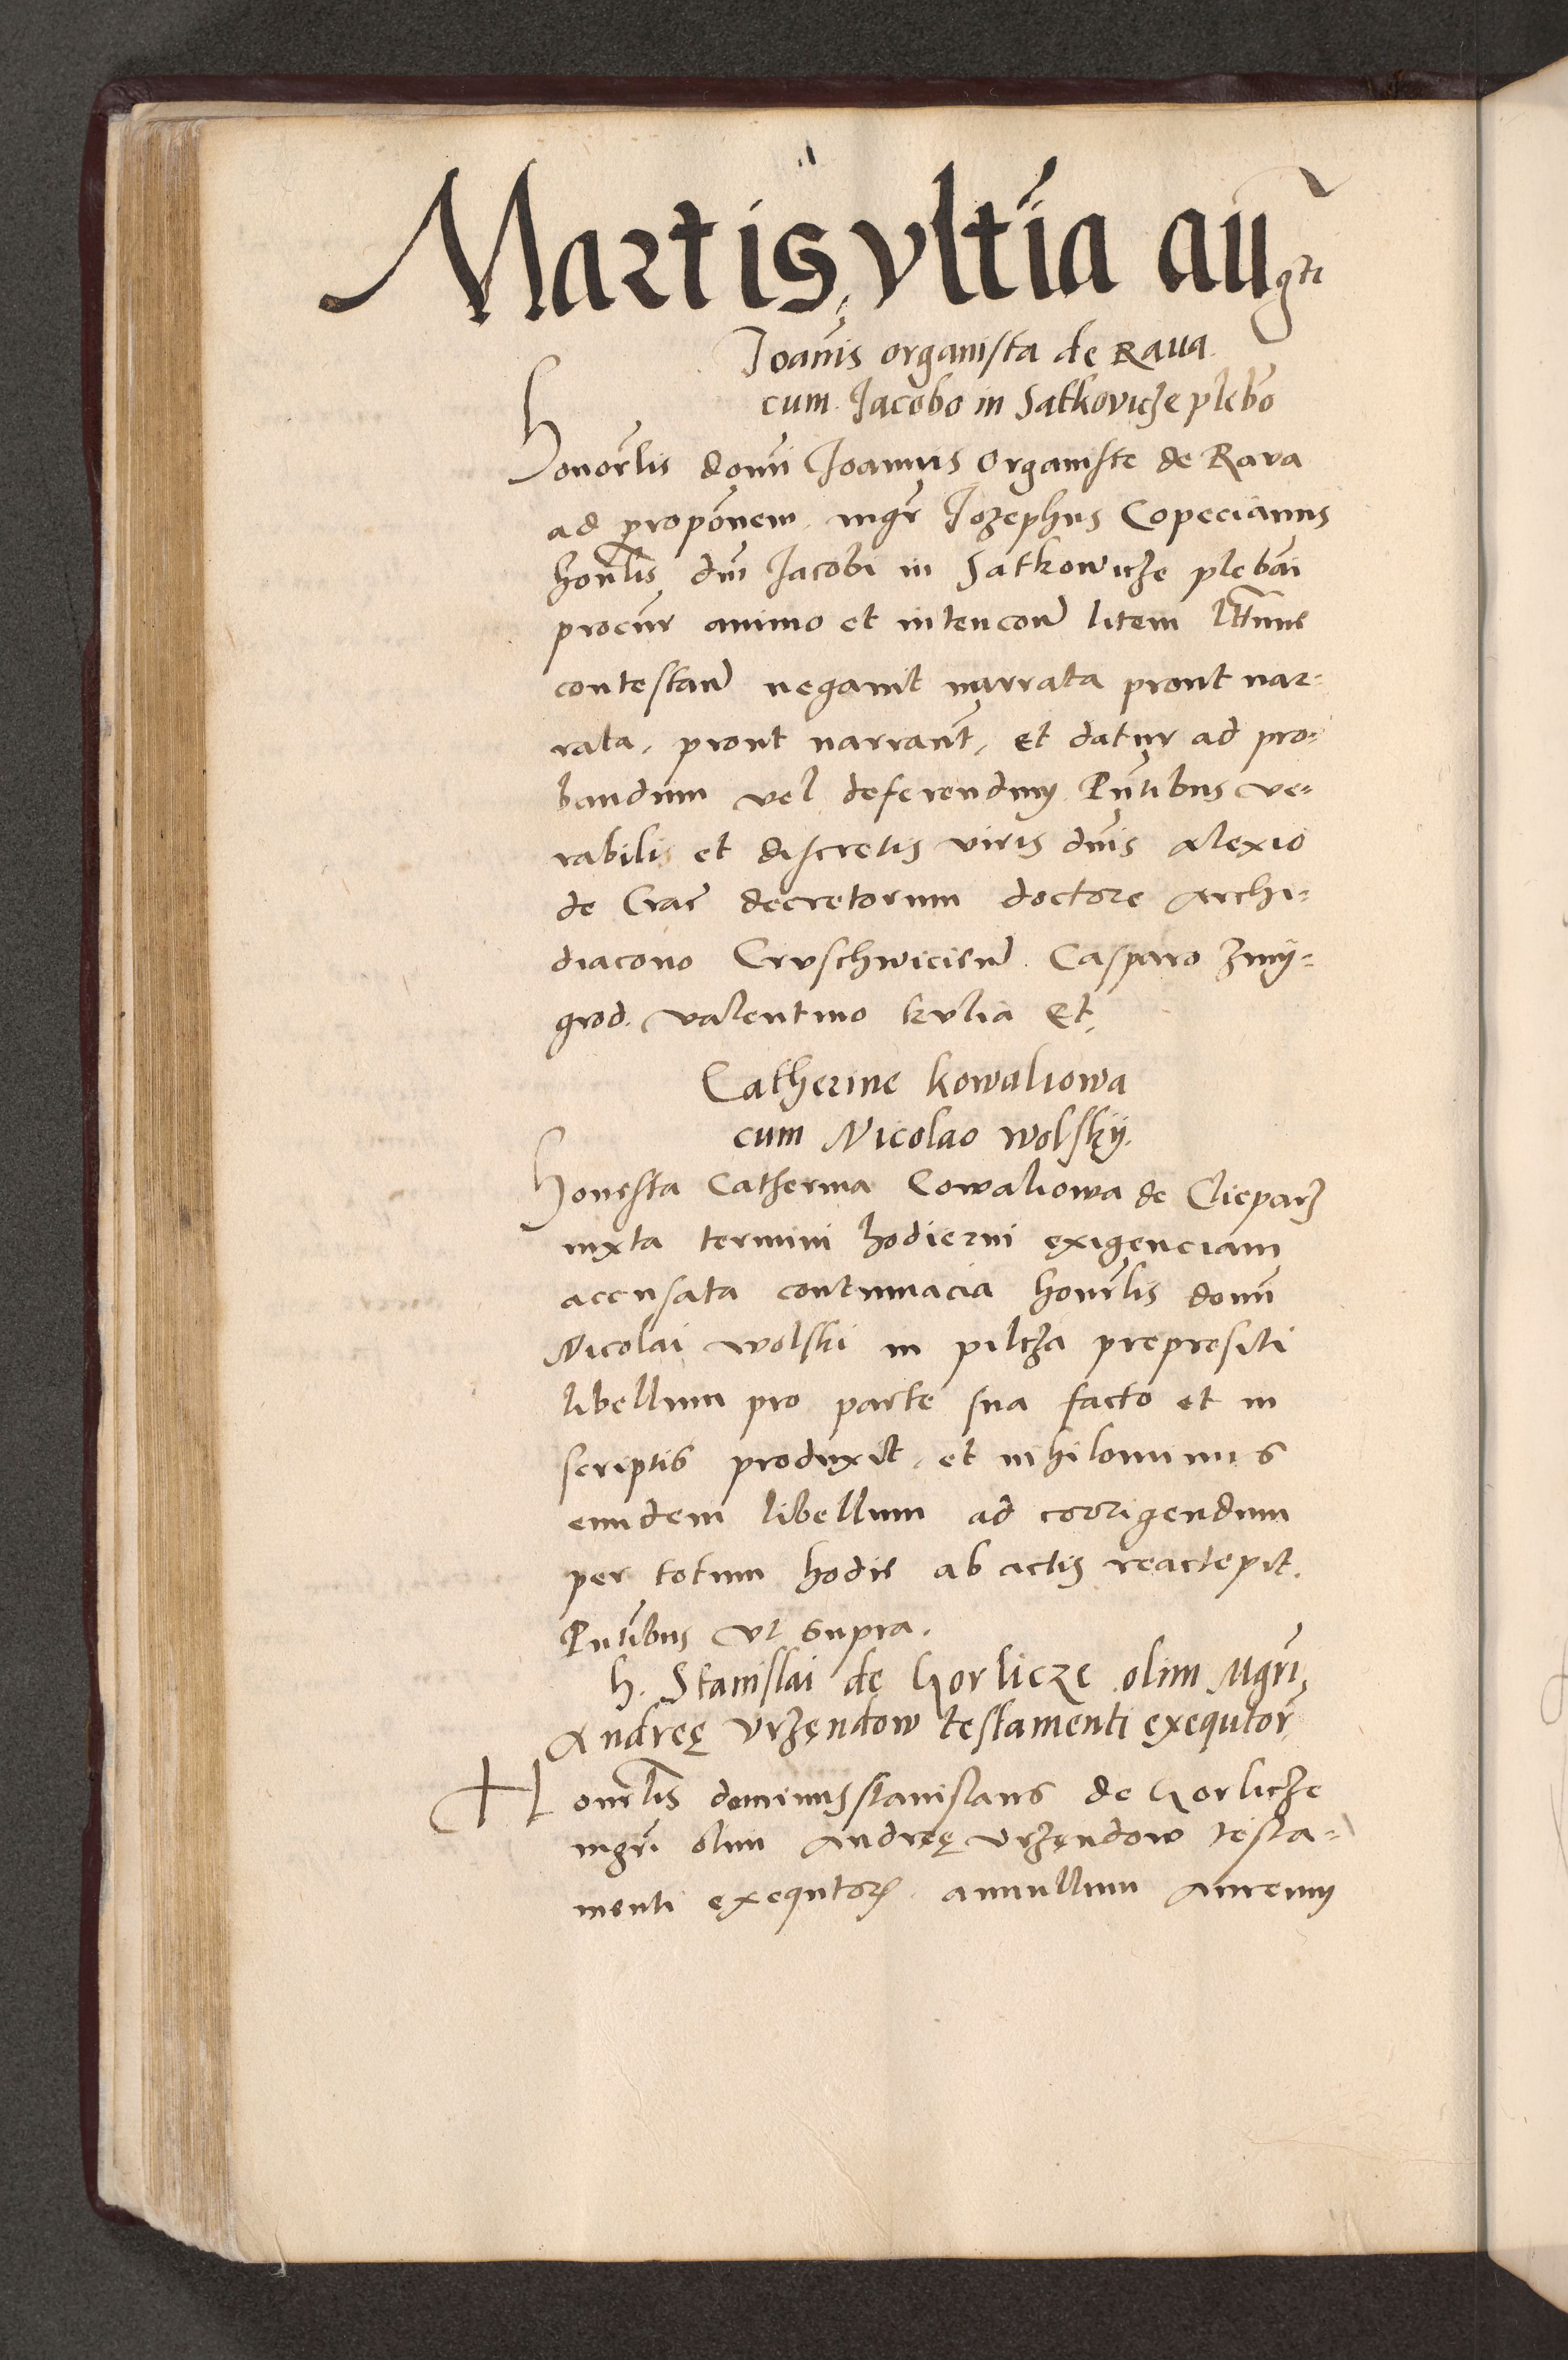 Martis, vltīa augti
Joānis organista de Raua
cum Jacobo in Satkovicze plebō
Honorlis domi Joannis Organiste de Rava
ad propōnem mgr Jozephus Copecianus
honrlis dni Jacobi in Satkowicze plebāi
procur animo et intencone litem lttīme
contestan negavit narrata prout nar:
rata, prout narrant, et datur ad pro:
bandum vel deferendum Pntibus ve:
rabilis et discretis viris dnis alexio
de Crac decretorum doctore archi:
diacono Cruschwicien Casparo zmÿ:
grod. valentino kulia Et,
Catherine kowaliowa
cum Nicolao wolskÿ.
Honesta Catherina Cowaliowa de Clieparz
iuxta termini hodierni exigenciam
accusata contumacia honrlis domi
Nicolai wolski in pilcza prepositi
libellum pro parte sua facto et in
scriptis produxit, et nihilominus
eundem libellum ad corrigendum
per totum hodie ab actis reaccepit.
Pntibus vt supra.
h. Stanislai de Gorlicze olim Mgri,
Andreę vrzędow testamenti exequtor
Honrlis dominus stanislaus de Gorlicze
mgri olim andreę vrzędow testa:
menti exequtor annullum aureum